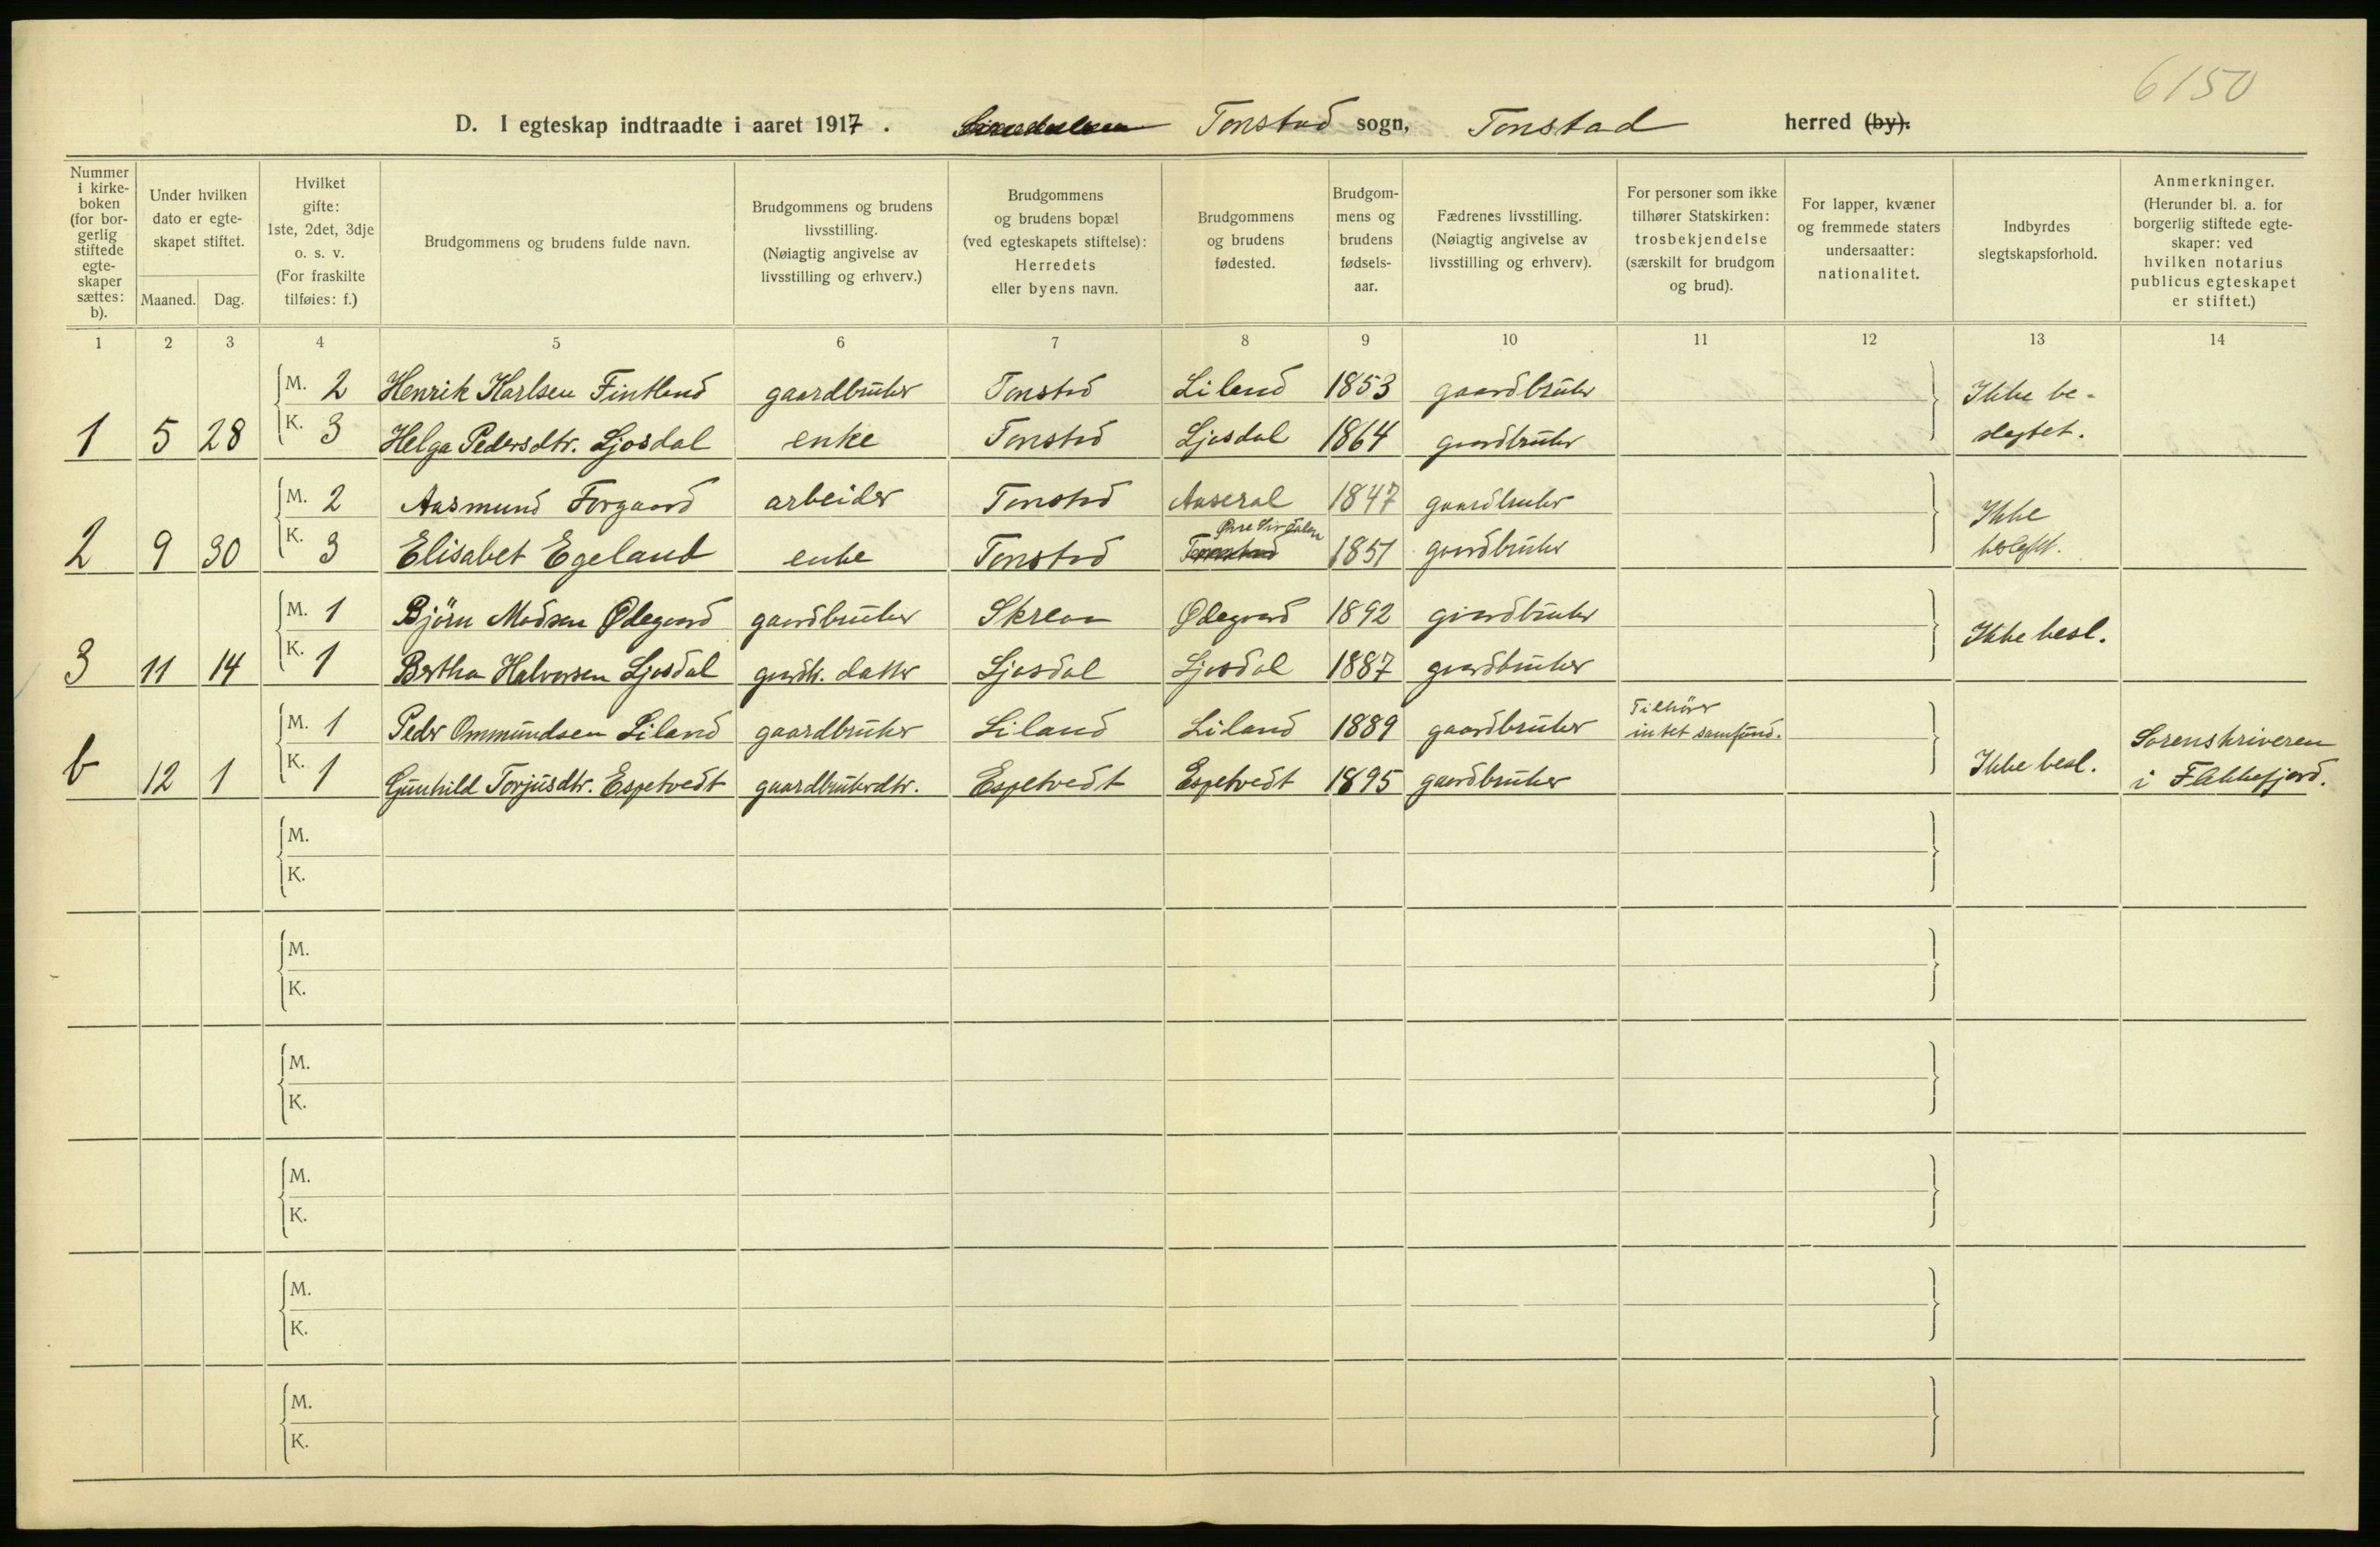 6150
D. I egteskap indtraadte i aaret 1917. Tonstad sogn, Tonstad herred (by).
Nummer i kirke- boken (for bor- gerlig stiftede egte- skaper sættes: b).
Under hvilken dato er egte- skapet stiftet.
Maaned. Dag.
Hvilket gifte: 1ste, 2det, 3dje o. s. v. (For fraskilte tilføies: f.)
Brudgommens og brudens fulde navn.
Brudgommens og brudens livsstilling. (Nøiagtig angivelse av livsstilling og erhverv.)
Brudgommens og brudens bopæl (ved egteskapets stiftelse): Herredets eller byens navn.
Brudgommens og brudens fødested.
Brudgom- mens og brudens fødsels- aar.
Fædrenes livsstilling. (Nøiagtig angivelse av livsstilling og erhverv).
For personer som ikke tilhører Statskirken: trosbekjendelse (særskilt for brudgom og brud).
For lapper, kvæner og fremmede staters undersaatter: nationalitet.
Indbyrdes slegtskapsforhold.
Anmerkninger. (Herunder bl. a. for borgerlig stiftede egte- skaper: ved hvilken notarius publicus egteskapet er stiftet.)
1 2 3 4 5 6 7 8 9 10 11 12 13 14
M. 2 Henrik Karlsen Fintland gaardbruker Tonstad Liland 1853 gaardbruker Ikke be-
1 5 28 K. 3 Helga Pedersdtr. Ljosdal enke Tonstad Ljosdal 1864 gaardbruker slegtet.
M. 2 Aasmund Forgaard arbeider Tonstad Aaseral 1847 gaardbruker Ikke
Øvre Sirdalen
2 9 30 K. 3 Elisabet Egeland enke Tonstad Tonstad 1851 gaardbruker beslegtet.
M. 1 Björn Madsen Ødegaard gaardbruker Skrean Ødegaard 1892 gaardbruker Ikke besl.
3 11 14 K. 1 Bertha Halvorsen Ljosdal gaardbr. datter Ljosdal Ljosdal 1887 gaardbruker
M. 1 Peder Ommundsen Liland gaardbruker Liland Liland 1889 gaardbruker Tilhører intet samfund.
b 12 1 K. 1 Gunhild Torjusdtr. Espetvedt gaardbrukerdtr. Espetvedt Espetvedt 1895 gaardbruker Ikke besl. Sorenskriveren i Flekkefjord.
M.
K.
M.
K.
M.
K.
M.
K.
M.
K.
M.
K.